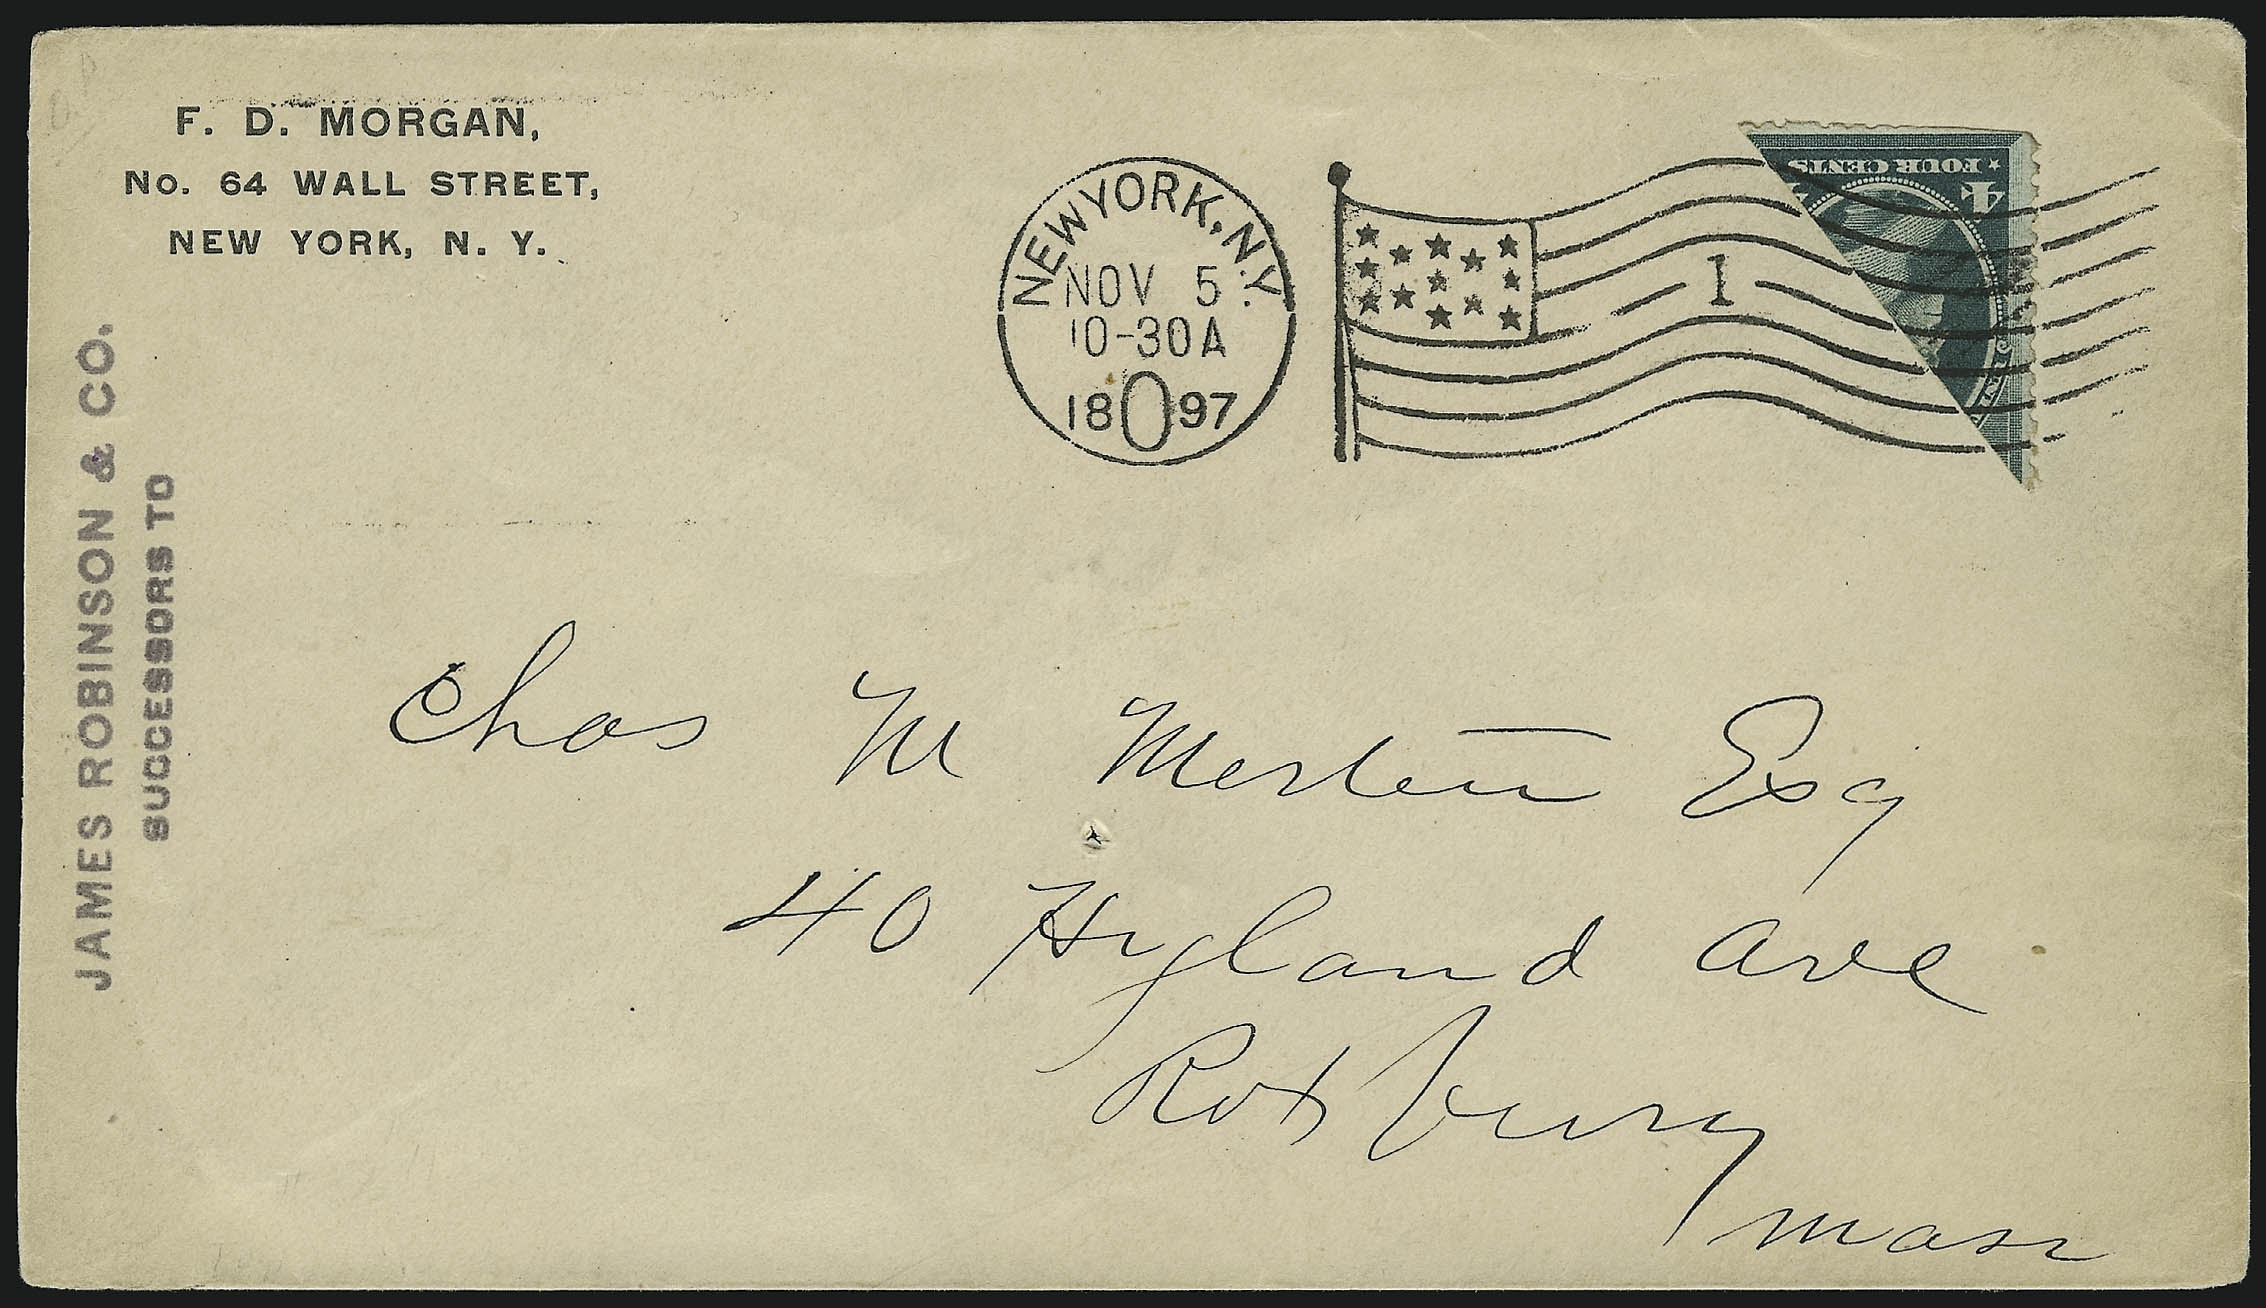 F. D. MORGAN,
No. 64 WALL STREET,
NEW YORK, N. Y.
JAMES ROBINSON & CO.
SUCCESSORS TO
NEW YORK, N.Y.
NOV 5
10-30A
1897
O
1
FOUR CENTS
4
Chas M Merten Esq
40 Hyland Ave
Roxbury
Mass